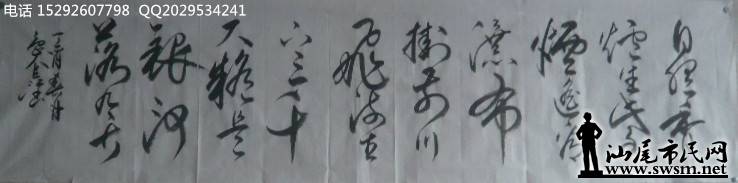 电话 15292607798 QQ2029534241
日照香
爐生紫
煙遥看
瀑布
掛前川
飛流直
下三千
尺疑是
銀河
落九天
丁酉春月
汕尾市民网
www.swsm.net